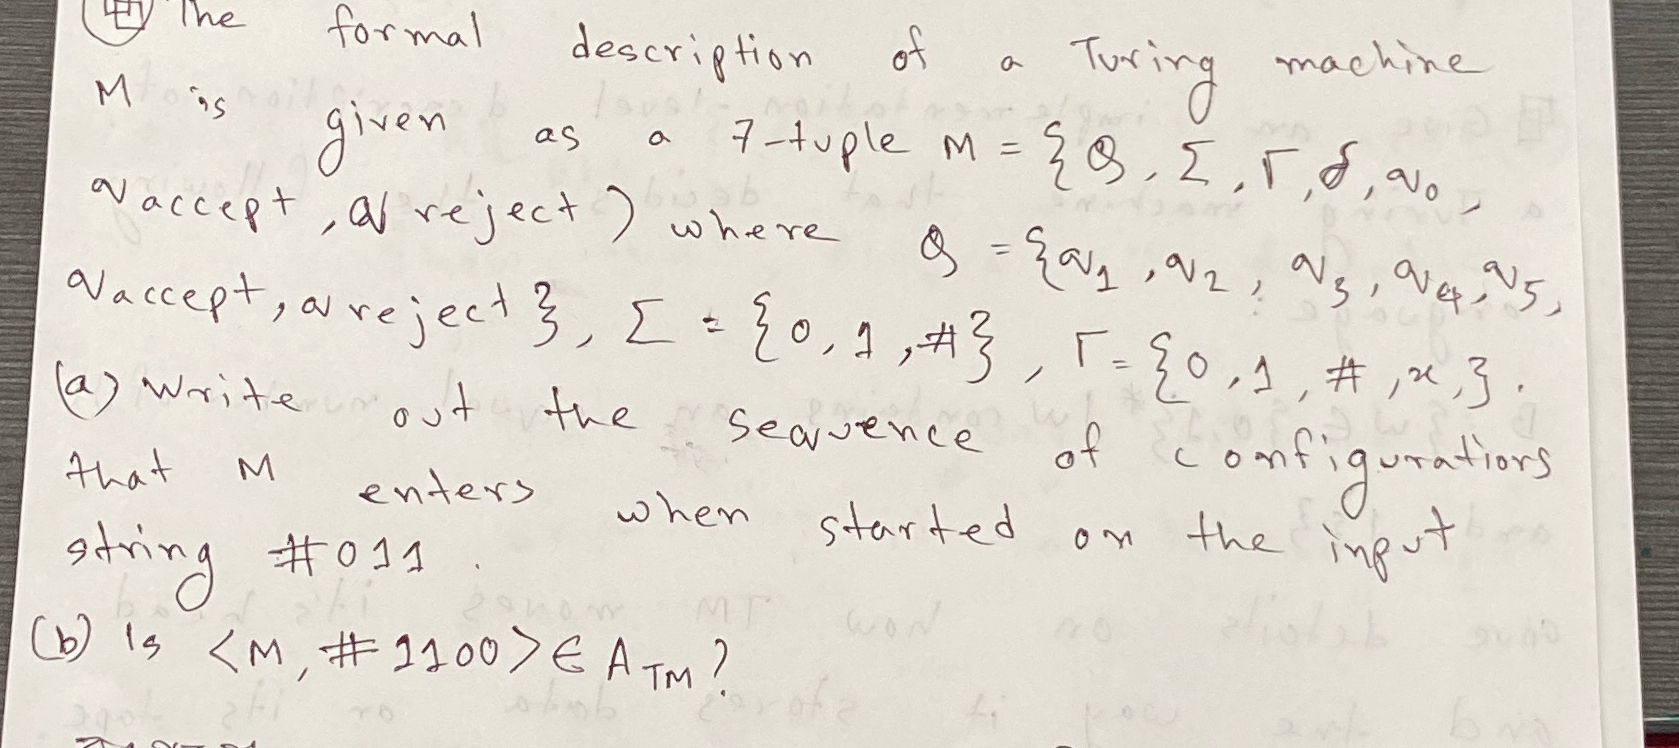 The formal description of a Turing machine
M is given as a 7-tuple M = {Q, Σ, Γ, δ, q0,
qaccept, qreject) where Q = {q1, q2, q3, q4, q5,
qaccept, qreject}, Σ = {0, 1, #}, Γ = {0, 1, #, x, }.
(a) Write out the sequence of configurations
that M enters when started on the input
string #011.
(b) Is <M, #1100> ∈ ATM?